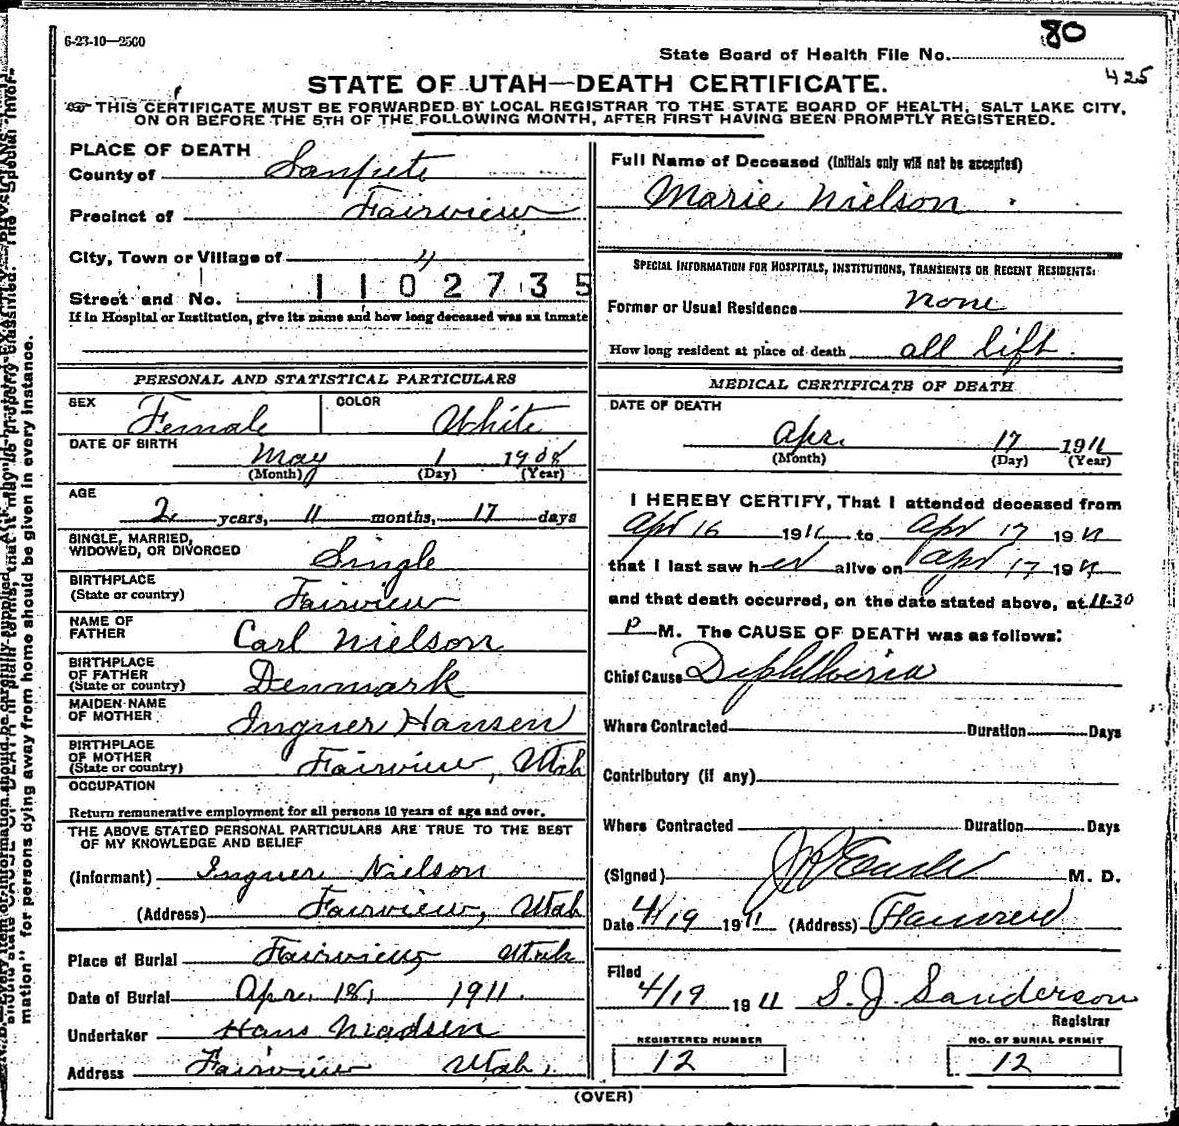 6-23-10—2500
80
State Board of Health File No.
425
STATE OF UTAH—DEATH CERTIFICATE.
THIS CERTIFICATE MUST BE FORWARDED BY LOCAL REGISTRAR TO THE STATE BOARD OF HEALTH, SALT LAKE CITY,
ON OR BEFORE THE 5TH OF THE FOLLOWING MONTH, AFTER FIRST HAVING BEEN PROMPTLY REGISTERED.
PLACE OF DEATH
County of Sanpete
Precinct of Fairview
City, Town or Village of "
Street and No. 1102735
If in Hospital or Institution, give its name and how long deceased was an inmate
PERSONAL AND STATISTICAL PARTICULARS
SEX Female COLOR White
DATE OF BIRTH May 1 1908
(Month) (Day) (Year)
AGE
2 years, 11 months, 17 days
SINGLE, MARRIED,
WIDOWED, OR DIVORCED Single
BIRTHPLACE
(State or country) Fairview
NAME OF
FATHER Carl Nielson
BIRTHPLACE
OF FATHER
(State or country) Denmark
MAIDEN NAME
OF MOTHER Inguer Hansen
BIRTHPLACE
OF MOTHER
(State or country) Fairview, Utah
OCCUPATION
Return remunerative employment for all persons 10 years of age and over.
THE ABOVE STATED PERSONAL PARTICULARS ARE TRUE TO THE BEST
OF MY KNOWLEDGE AND BELIEF
(Informant) Inguer Nielson
(Address) Fairview, Utah
Place of Burial Fairview Utah
Date of Burial Apr. 18, 1911.
Undertaker Hans Madsen
Address Fairview Utah.
Full Name of Deceased (Initials only will not be accepted)
Marie Nielson
SPECIAL INFORMATION FOR HOSPITALS, INSTITUTIONS, TRANSIENTS OR RECENT RESIDENTS:
Former or Usual Residence none
How long resident at place of death all life.
MEDICAL CERTIFICATE OF DEATH
DATE OF DEATH
Apr. 17 1911
(Month) (Day) (Year)
I HEREBY CERTIFY, That I attended deceased from
Apr 16 1911 to Apr 17 1911
that I last saw her alive on Apr 17 1911
and that death occurred, on the date stated above, at 11-30
P M. The CAUSE OF DEATH was as follows:
Chief Cause Diphtheria
Where Contracted Duration Days
Contributory (if any)
Where Contracted Duration Days
(Signed) M. D.
Date 4/19 1911 (Address) Fairview
Filed
4/19 1911 S. J. Sanderson
Registrar
REGISTERED NUMBER
12
NO. OF BURIAL PERMIT
12
(OVER)
mation" for persons dying away from home should be given in every instance.